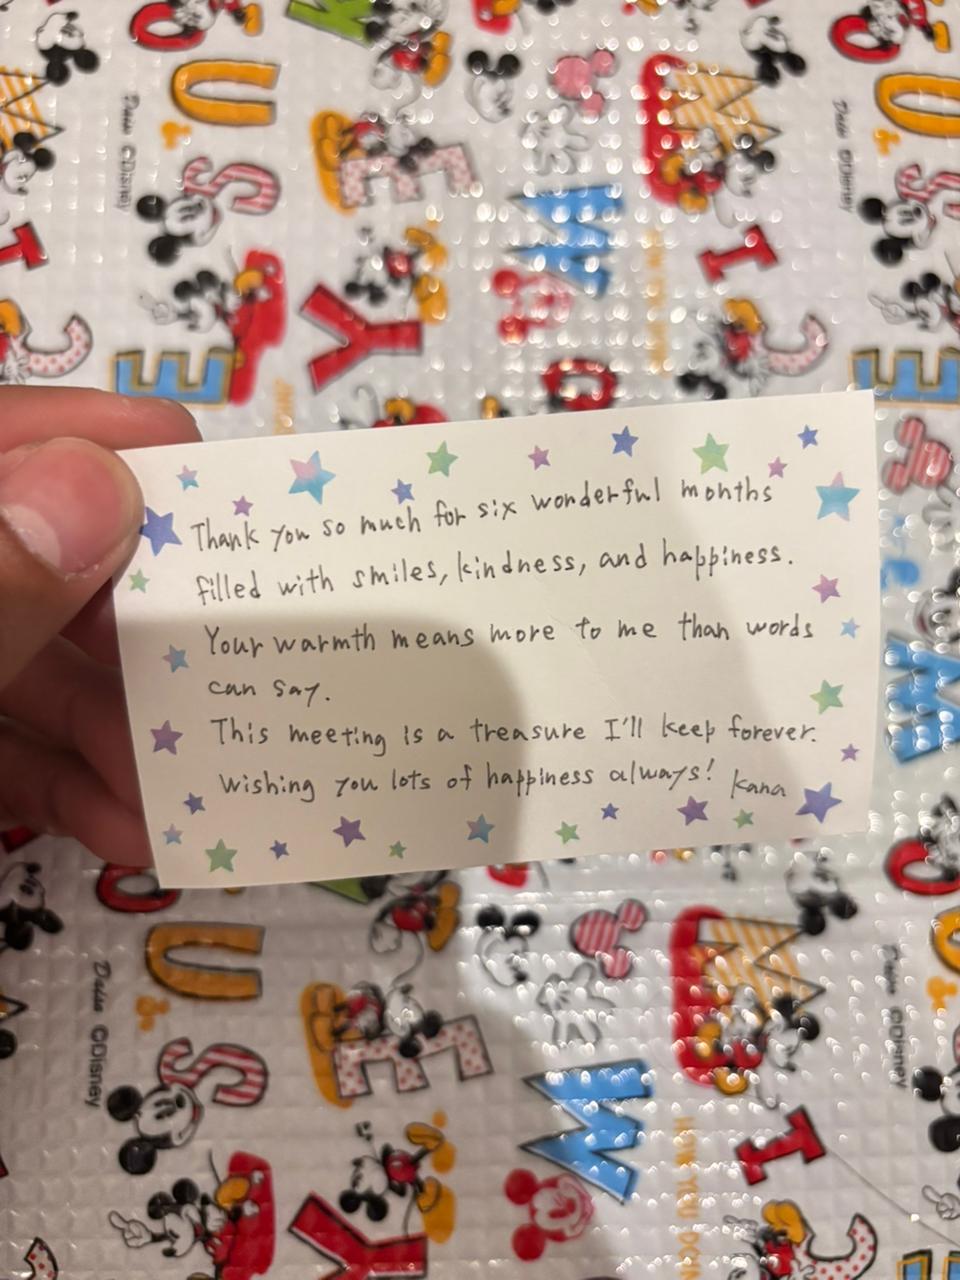 Thank you so much for six wonderful months
filled with smiles, kindness, and happiness.
Your warmth means more to me than words
can say.
This meeting is a treasure I'll keep forever.
Wishing you lots of happiness always! Kana
©Disney
©Disney
©Disney
©Disney